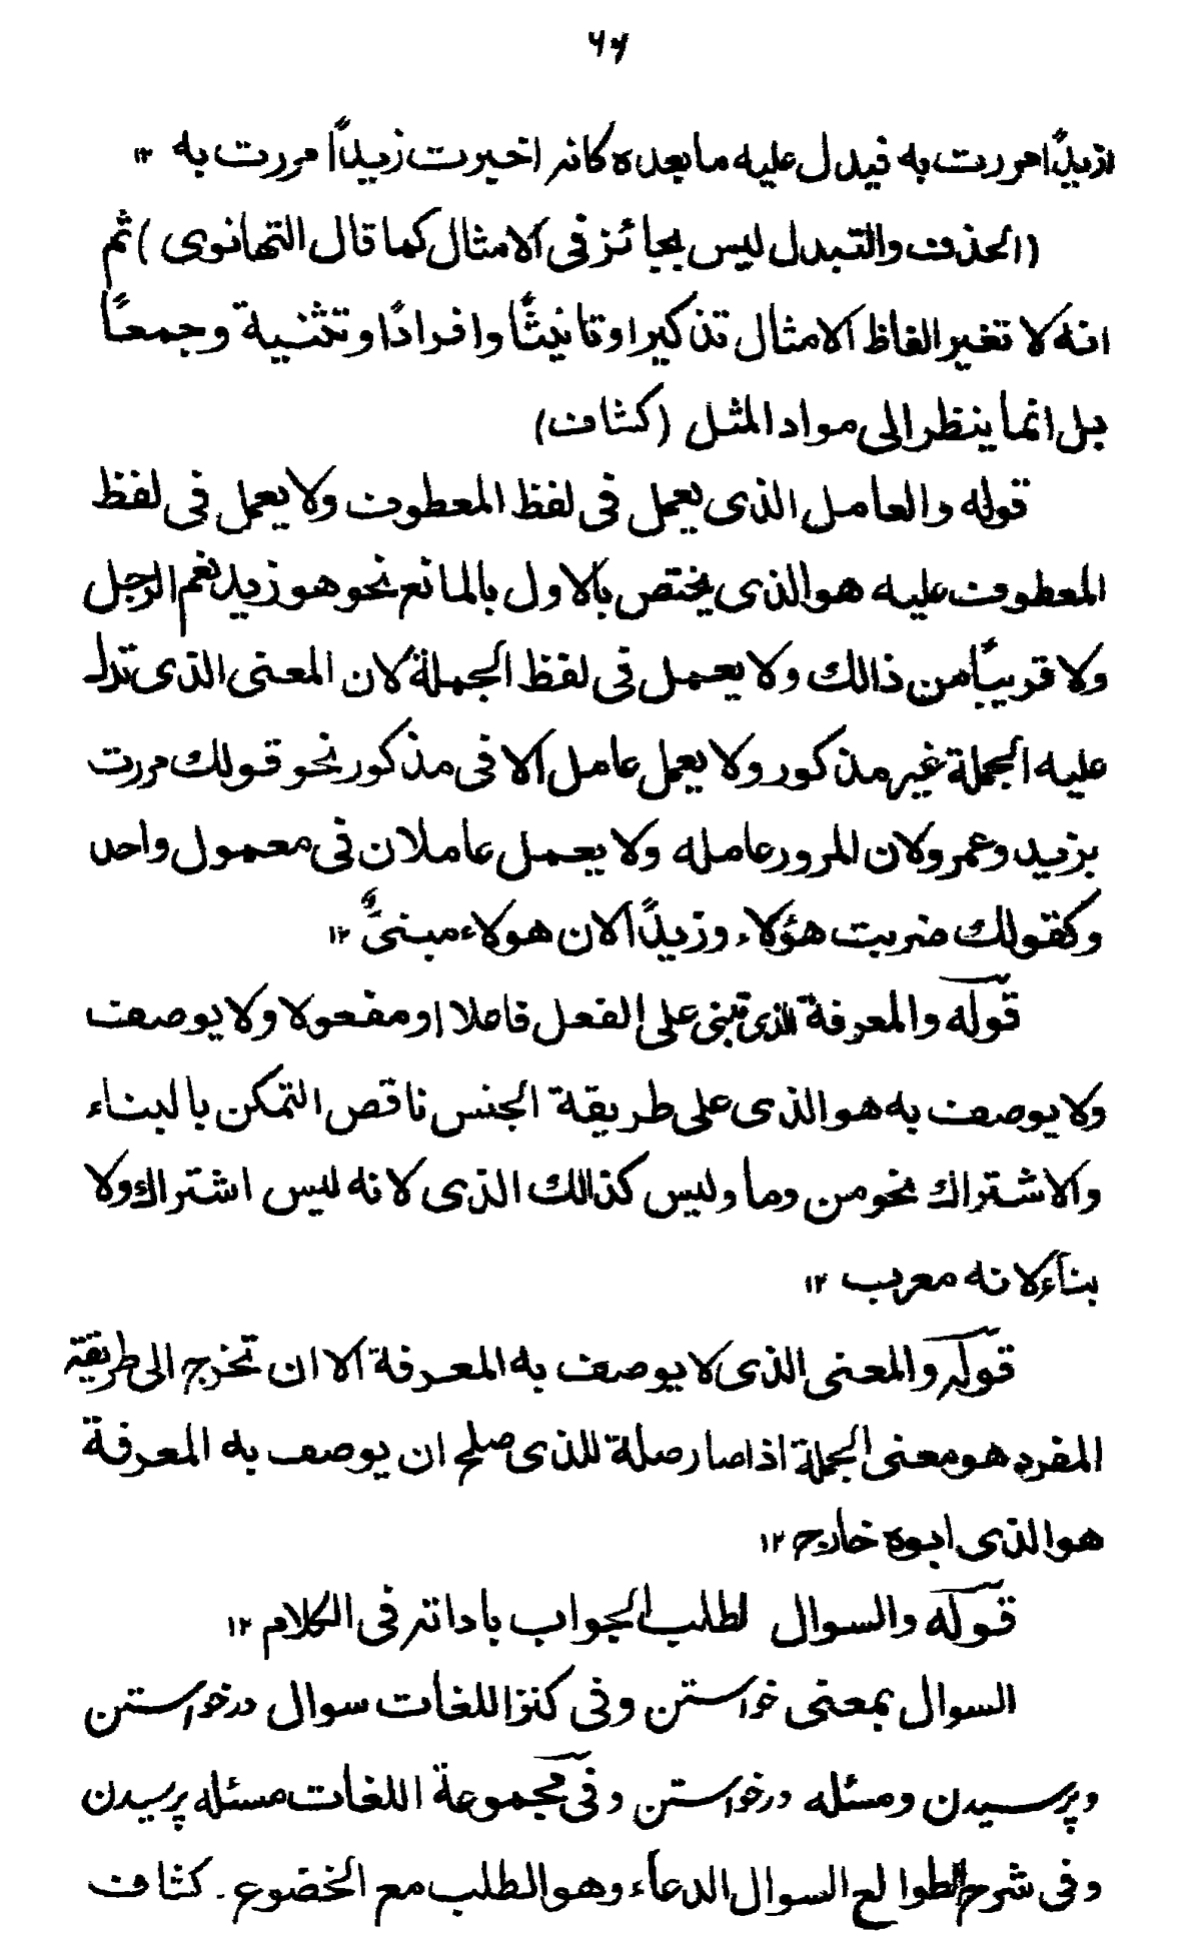 ۶۷
زیدًا مررت به فیدل علیه ما بعده کانہ اخبرت زیدًا مررت به ۱۲
(الحذف والتبدل لیس بجائز فی الامثال کما قال التهانوی) ثم
انه لا تغیر الفاظ الامثال تذکیرا وتانیثًا وافرادًا وتثنیة وجمعًا
بل انما ینظر الی مواد المثل (کشاف)
قوله والعامل الذی یعمل فی لفظ المعطوف ولا یعمل فی لفظ
المعطوف علیه هو الذی یختص بالاول بالمانع نحو هو زید نعم الرجل
ولا قریبًا من ذالك ولا یعمل فی لفظ الجملة لان المعنی الذی تدل
علیه الجملة غیر مذکور ولا یعمل عامل الا فی مذکور نحو قولك مررت
بزید وعمر ولان المرور عامله ولا یعمل عاملان فی معمول واحد
وکقولك ضربت هؤلاء وزیدًا لان هولاء مبنیٌّ ۱۲
قوله والمعرفة الذی تبنی علی الفعل فاعلا او مفعولا ولا یوصف
ولا یوصف به هو الذی علی طریقة الجنس ناقص التمکن بالبناء
والاشتراك نحو من وما ولیس کذالك الذی لانه لیس اشتراك ولا
بناء لانه معرب ۱۲
قوله والمعنی الذی لا یوصف به المعرفة الا ان تخرج الی طریقة
المفرد هو معنی الجملة اذا صار صلة للذی صلح ان یوصف به المعرفة
هو الذی ابوه خارج ۱۲
قوله والسوال لطلب الجواب باداته فی الکلام ۱۲
السوال بمعنی خواستن وفی کنز اللغات سوال درخواستن
وپرسیدن ومسئله درخواستن وفی مجموعة اللغات مسئله پرسیدن
وفی شرح الطوالع السوال الدعاء وهو الطلب مع الخضوع۔ کشاف